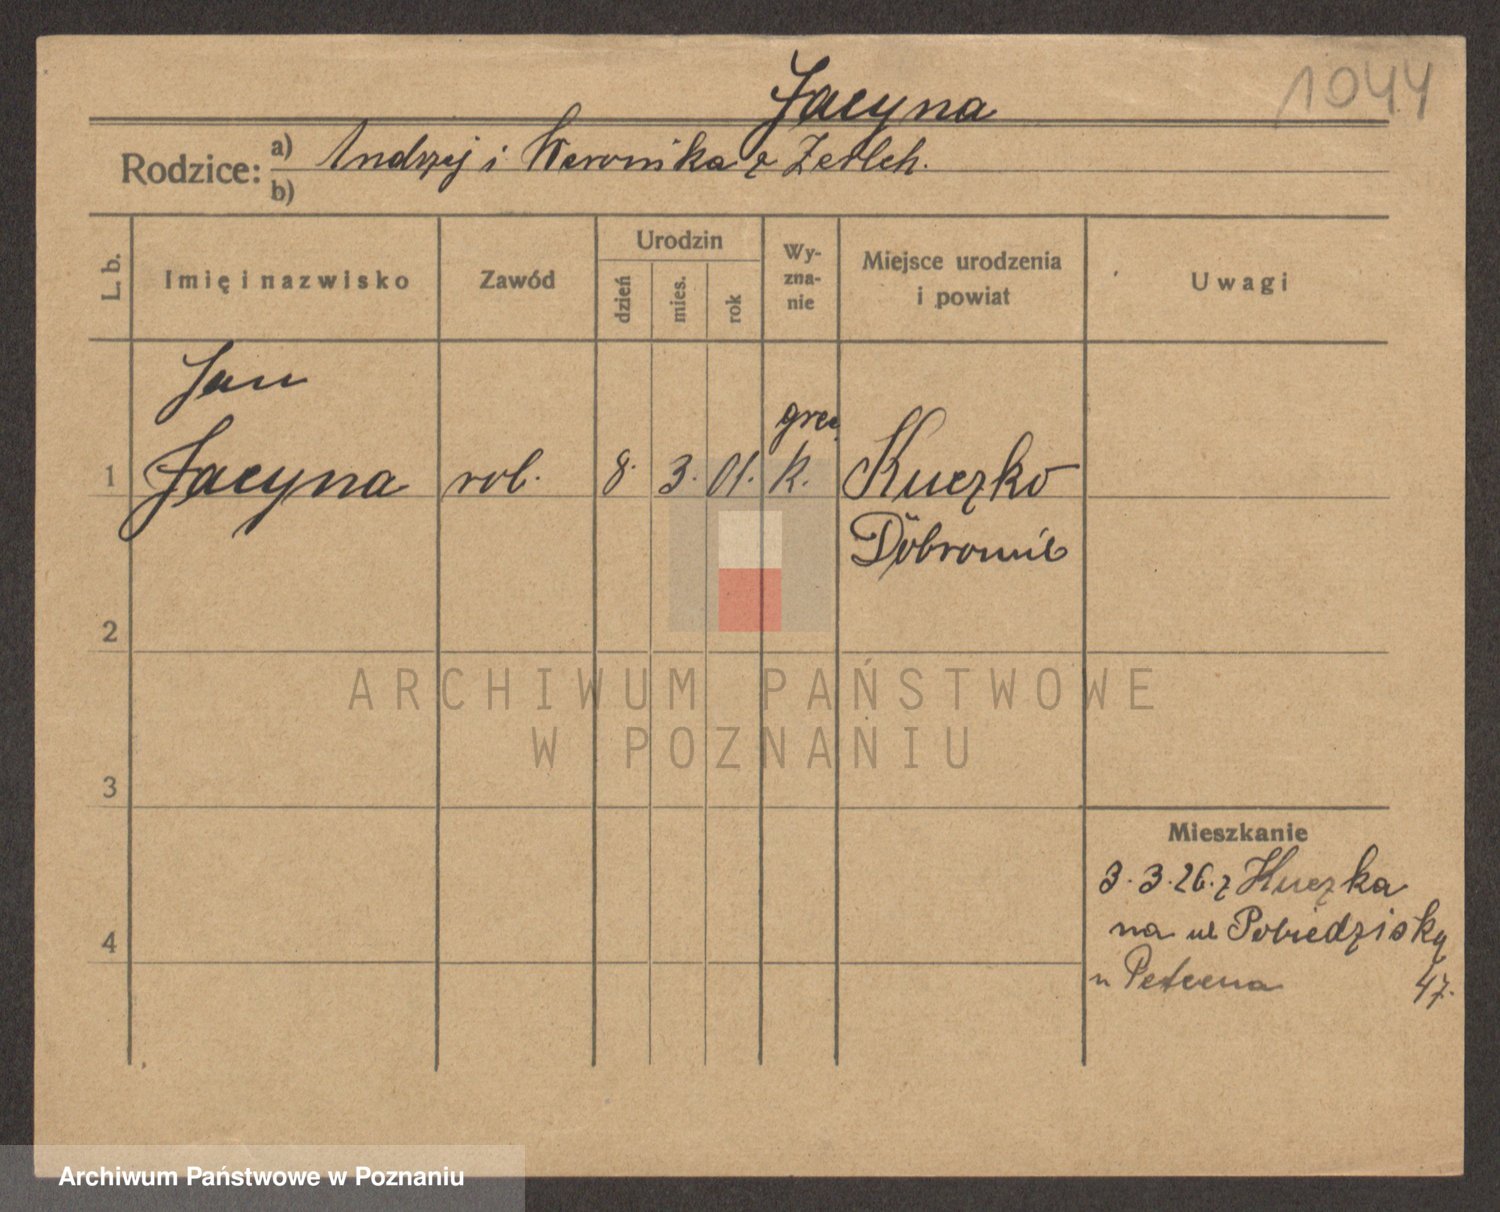 1044
Jacyna
Rodzice: a) Andrzej i Weronika z Zerlch.
b)
L. b. Imię i nazwisko Zawód Urodzin dzień mies. rok Wy-zna-nie Miejsce urodzenia i powiat Uwagi
Jan
grec.
1 Jacyna rob. 8. 3. 01. k. Kuczko
Dobromil
2
ARCHIWUM PAŃSTWOWE
W POZNANIU
3
Mieszkanie
3.3.26. z Kuczka
4 na ul Pobiedziską
u 47.
Archiwum Państwowe w Poznaniu